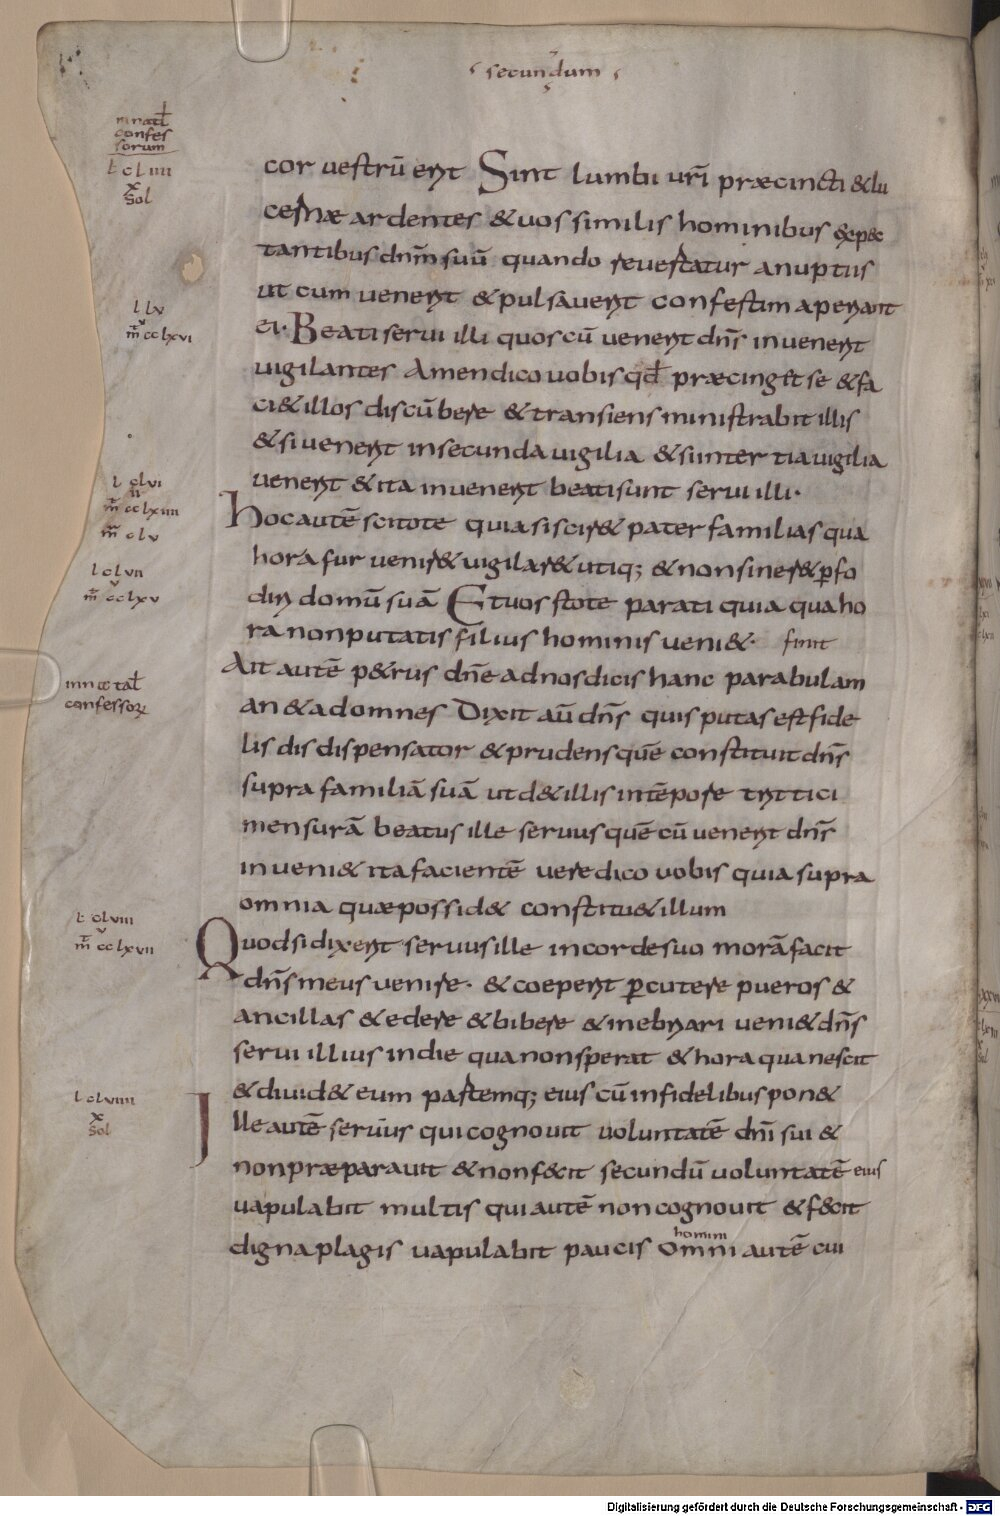 secundum
in natł
confes
sorum
ł clıııı
x
sol
cor uestrū erit Sint lumbi ur̄i præcincti & lu
cernæ ardentes & uos similis hominibus expec
tantibus dnm̄ suū quando reuertatur a nuptiis
ut cum uenerit & pulsauerit confestim aperiant
ei · Beati serui illi quos cū uenerit dn̄s inuenerit
uigilantes Amen dico uobis qđ præcing& se & fa
ci& illos discūbere & transiens ministrabit illis
& si uenerit in secunda uigilia & si in tertia uigilia
uenerit & ita inuenerit beati sunt serui illi ·
hoc autē scitote quia si scir& pater familias qua
hora fur uenir& uigilar& utiq; & non siner& ꝑfo
diri domū suā Et uos stote parati quia qua ho
ra non putatis filius hominis ueni& · finit
Ait autē p&rus dn̄e ad nos dicis hanc parabulam
an & ad omnes Dixit aū dn̄s quis putas est fide
lis dis dispensator & prudens quē constituit dn̄s
supra familiā suā ut d& illis in tēpore tritici
mensurā beatus ille seruus quē cū uenerit dn̄s
inueni& ita facientē uere dico uobis quia supra
omnia quæ possid& constitu& illum
Quod si dixerit seruus ille in corde suo morā facit
dn̄s meus uenire · & coeperit ꝑcutere pueros &
ancillas & edere & bibere & inebriari ueni& dn̄s
serui illius in die qua non sperat & hora qua nescit
& diuid& eum partemq; eius cū infidelibus pon&
Ille autē seruus qui cognouit uoluntatē dn̄i sui &
non præparauit & non fecit secundū uoluntatē eius
uapulabit multis qui autē non cognouit & fecit
homini
digna plagis uapulabit paucis omni autē cui
ł lv
m̄ cclxvi
ł clvi
m̄ cclxiiii
m̄ clv
ł clvii
v
m̄ cclxv
in natał
confessoꝝ
ł clviii
v
m̄ cclxvii
ł clviiii
x
sol
Digitalisierung gefördert durch die Deutsche Forschungsgemeinschaft - DFG